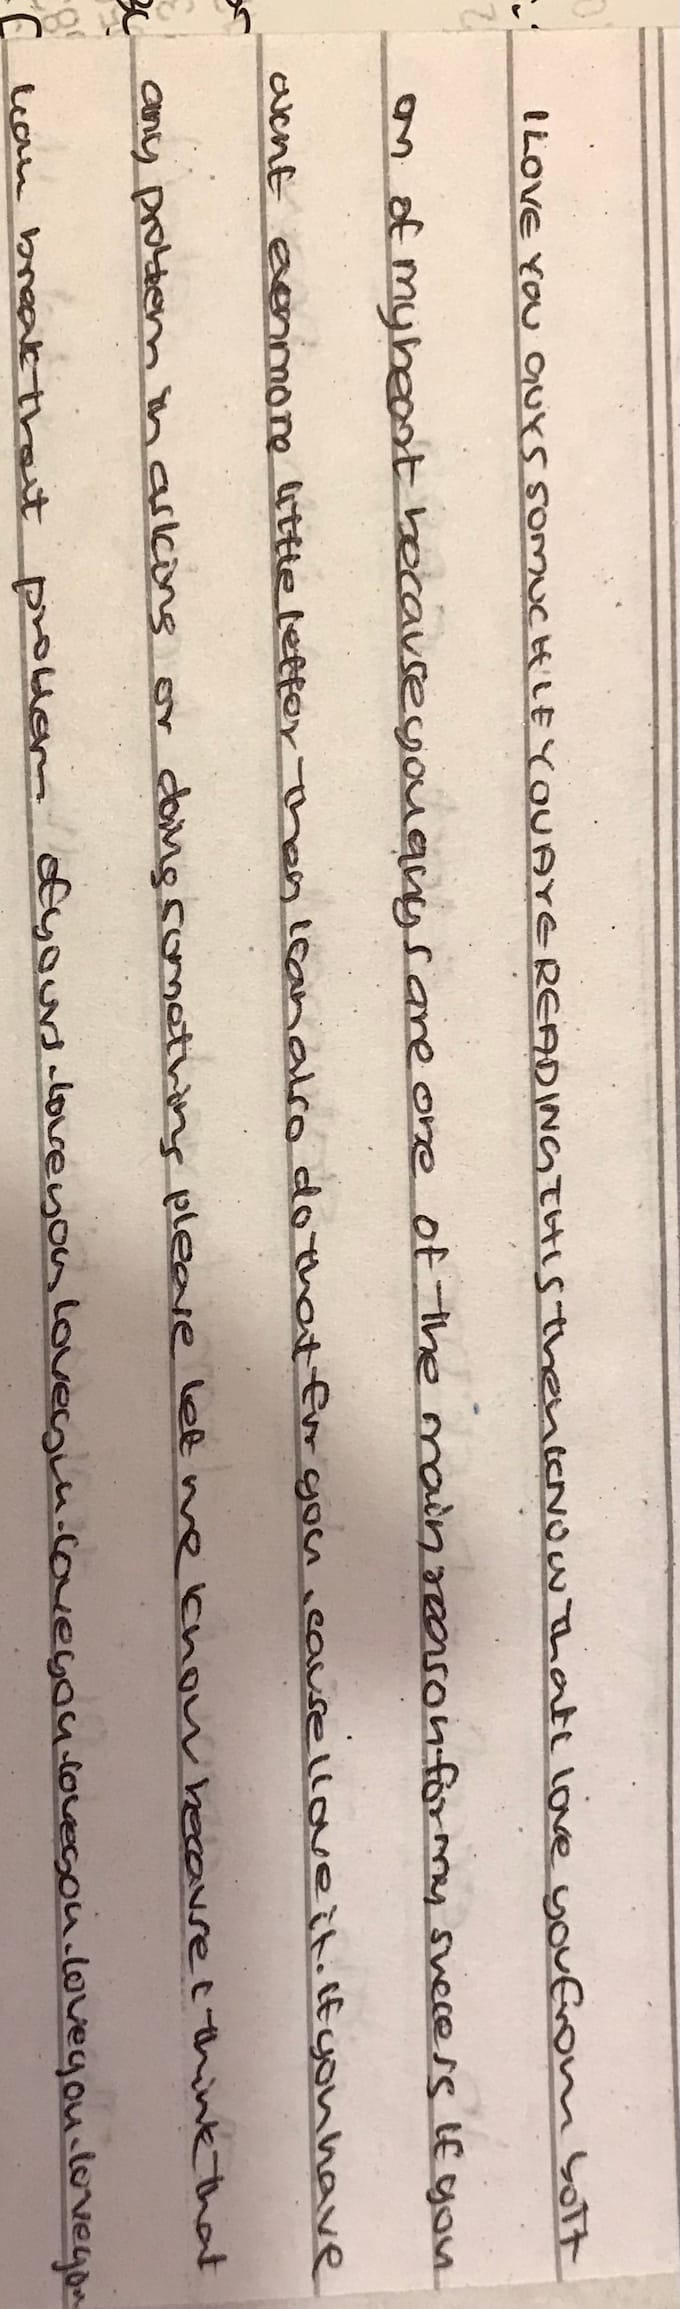 I LOVE YOU GUYS SO MUCH IF YOU ArE READING THIS then KNOW that I love you from bott
om of my heart because you guys are one of the main reason for my success If you
want more little letter then I can also do that for you . cause I love it. If you have
any problem in asking or doing something please let me know because I think that
I can break that problem of yours. love you love you. love you. love you. love you. love you